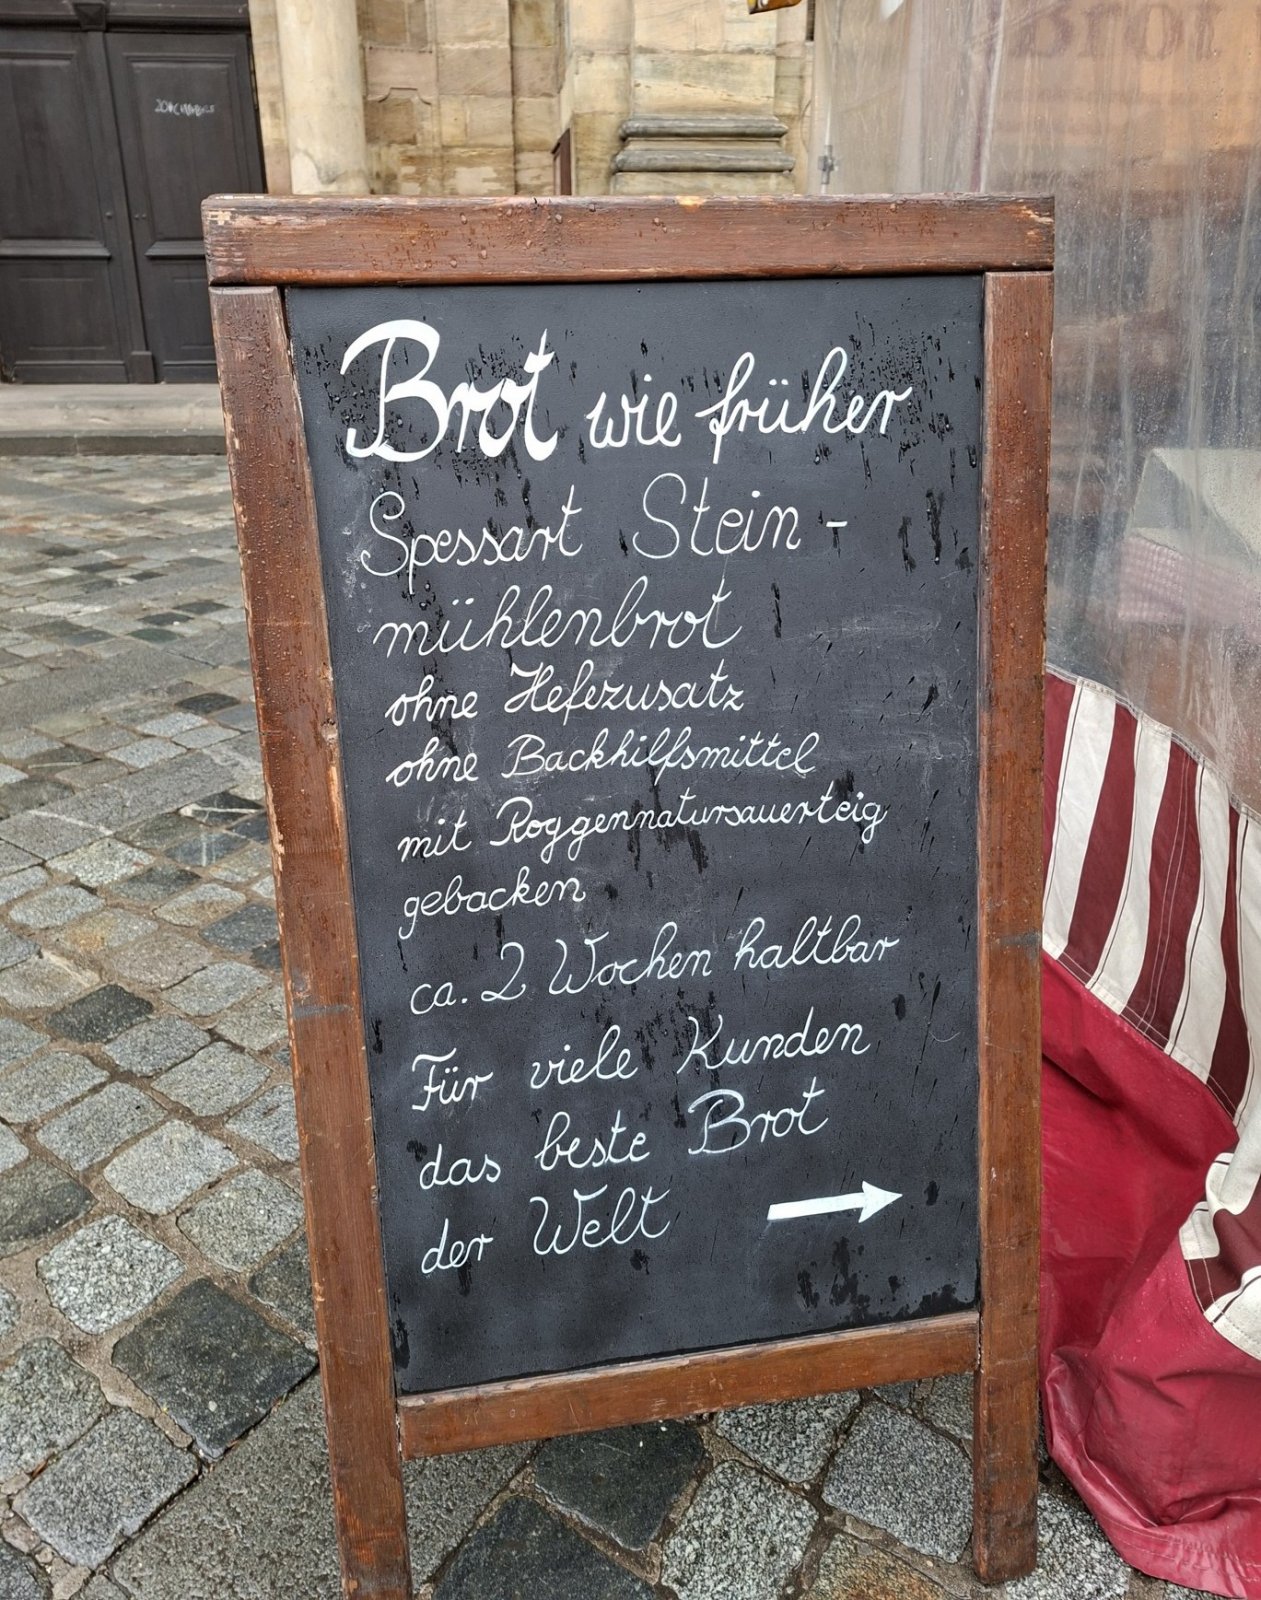 Brot
Brot wie früher
Spessart Stein-
mühlenbrot
ohne Hefezusatz
ohne Backhilfsmittel
mit Roggennatursauerteig
gebacken
ca. 2 Wochen haltbar
Für viele Kunden
das beste Brot
der Welt